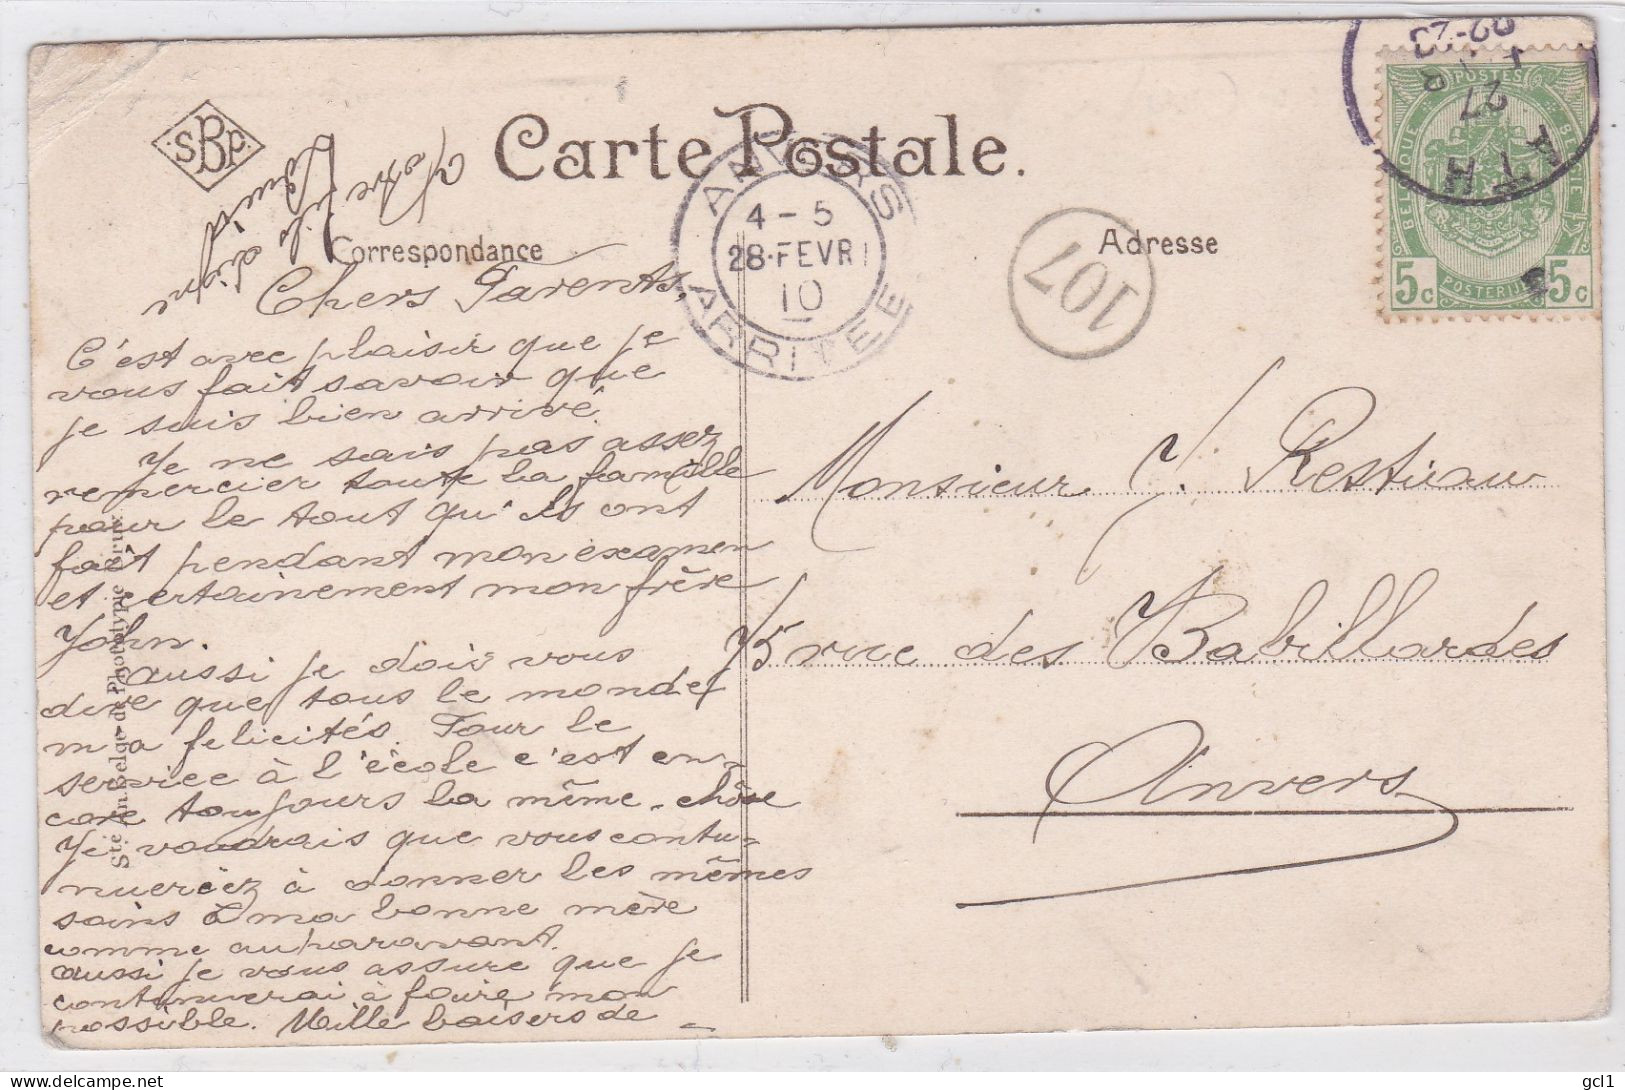 SBP
Carte Postale.
Correspondance
Adresse
ANVERS
4-5
28 FEVR
10
ARRIVEE
107
ATH
27
POSTES
BELGIQUE
BELGIE
POSTERIJEN
5c 5c
Chers Parents,
C'est avec plaisir que je
vous fait savoir que
je suis bien arrivé.
Je ne sais pas assez
remercier toute la famille
pour le tout qu'ils ont
fait pendant mon examen
et certainement mon frère
John.
aussi je dois vous
dire que tous le monde
m'a felicités. Pour le
service à l'école c'est en-
core toujours la même chose
Je voudrais que vous contu-
nueriez à donner les mêmes
soins à ma bonne mère
comme auparavant.
aussi je vous assure que je
continuerai à faire mon
possible. Mille baisers de
Votre fils digne
Louis
Monsieur J. Restiau
75 rue des Babillardes
Anvers
Sté An. Belge de Phototypie Brux.
gcl1